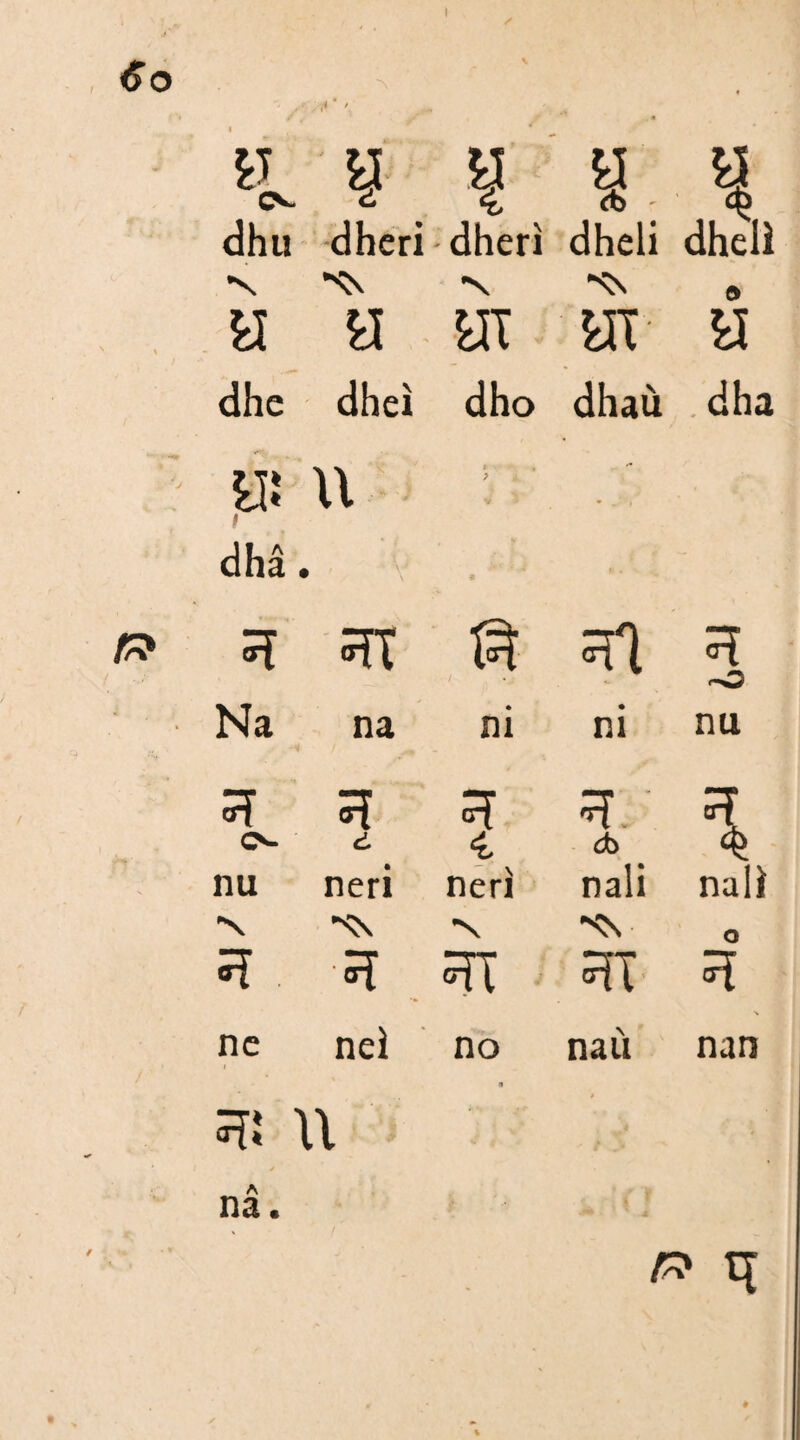 60
धू धृ धॄ धॢ धॣ
dhu dheri dherì dheli dhelì
धे धै धो धौ धं
dhe dheì dho dhaù dha
धः ॥
dhâ.
न ना नि नी नु
Na na ni ni nu
नू नृ नॄ नॢ नॣ
nu neri nerì nali nalì
ने नै नो नौ नं
ne neì no naù nan
नः ॥
nâ.
प